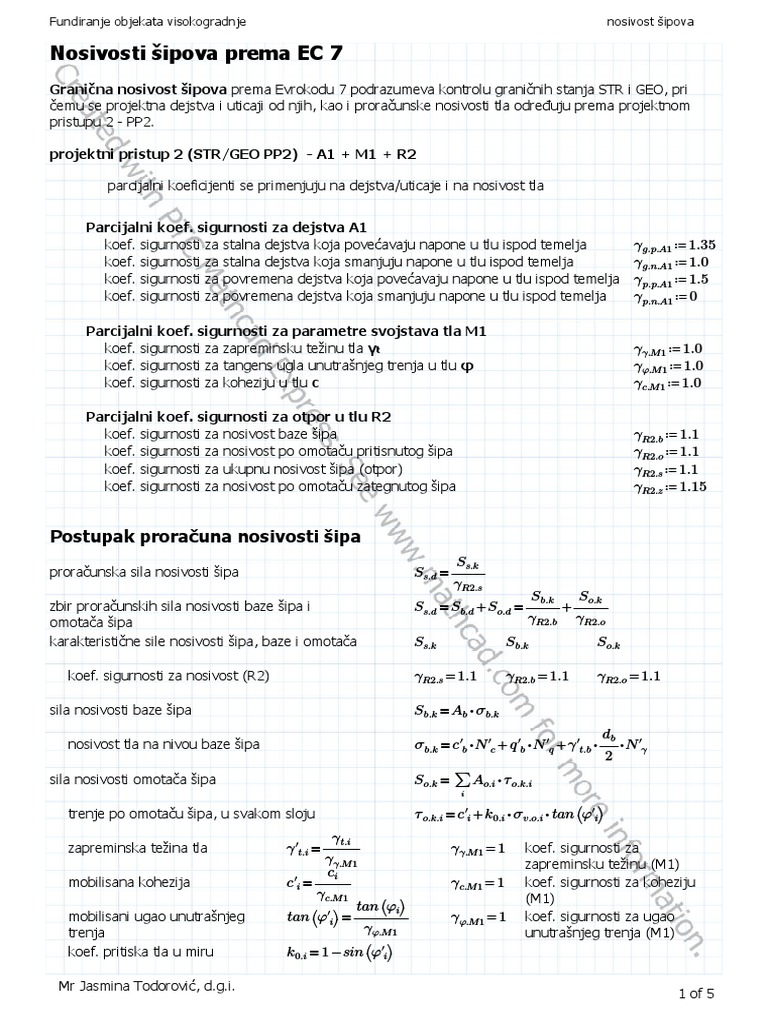 Fundiranje objekata visokogradnje nosivost šipova
Nosivosti šipova prema EC 7
Granična nosivost šipova prema Evrokodu 7 podrazumeva kontrolu graničnih stanja STR i GEO, pri
čemu se projektna dejstva i uticaji od njih, kao i proračunske nosivosti tla određuju prema projektnom
pristupu 2 - PP2.
projektni pristup 2 (STR/GEO PP2) - A1 + M1 + R2
parcijalni koeficijenti se primenjuju na dejstva/uticaje i na nosivost tla
Parcijalni koef. sigurnosti za dejstva A1
koef. sigurnosti za stalna dejstva koja povećavaju napone u tlu ispod temelja γg.p.A1 := 1.35
koef. sigurnosti za stalna dejstva koja smanjuju napone u tlu ispod temelja γg.n.A1 := 1.0
koef. sigurnosti za povremena dejstva koja povećavaju napone u tlu ispod temelja γp.p.A1 := 1.5
koef. sigurnosti za povremena dejstva koja smanjuju napone u tlu ispod temelja γp.n.A1 := 0
Parcijalni koef. sigurnosti za parametre svojstava tla M1
koef. sigurnosti za zapreminsku težinu tla γt γγ.M1 := 1.0
koef. sigurnosti za tangens ugla unutrašnjeg trenja u tlu φ γφ.M1 := 1.0
koef. sigurnosti za koheziju u tlu c γc.M1 := 1.0
Parcijalni koef. sigurnosti za otpor u tlu R2
koef. sigurnosti za nosivost baze šipa γR2.b := 1.1
koef. sigurnosti za nosivost po omotaču pritisnutog šipa γR2.o := 1.1
koef. sigurnosti za ukupnu nosivost šipa (otpor) γR2.s := 1.1
koef. sigurnosti za nosivost po omotaču zategnutog šipa γR2.z := 1.15
Postupak proračuna nosivosti šipa
proračunska sila nosivosti šipa Ss.d = Ss.k / γR2.s
zbir proračunskih sila nosivosti baze šipa i Ss.d = Sb.d + So.d = Sb.k / γR2.b + So.k / γR2.o
omotača šipa
karakteristične sile nosivosti šipa, baze i omotača Ss.k Sb.k So.k
koef. sigurnosti za nosivost (R2) γR2.s = 1.1 γR2.b = 1.1 γR2.o = 1.1
sila nosivosti baze šipa Sb.k = Ab · σb.k
nosivost tla na nivou baze šipa σb.k = c′b · N′c + q′b · N′q + γ′t.b · db / 2 · N′γ
sila nosivosti omotača šipa So.k = ∑i Ao.i · τo.k.i
trenje po omotaču šipa, u svakom sloju τo.k.i = c′i + k0.i · σv.o.i · tan(φ′i)
zapreminska težina tla γ′t.i = γt.i / γγ.M1 γγ.M1 = 1 koef. sigurnosti za
zapreminsku težinu (M1)
mobilisana kohezija c′i = ci / γc.M1 γc.M1 = 1 koef. sigurnosti za koheziju
(M1)
mobilisani ugao unutrašnjeg tan(φ′i) = tan(φi) / γφ.M1 γφ.M1 = 1 koef. sigurnosti za ugao
trenja unutrašnjeg trenja (M1)
koef. pritiska tla u miru k0.i = 1 − sin(φ′i)
Mr Jasmina Todorović, d.g.i.
1 of 5
Created with PTC Mathcad Express. See www.mathcad.com for more information.